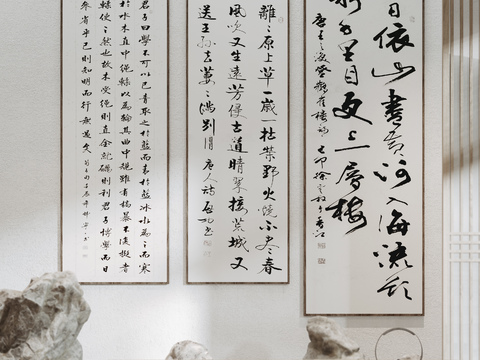 日依山盡黄河入海流欲
千里目更上一層樓
唐王之渙登鸛雀樓詩
離々原上草一歲一枯榮野火燒不盡春
風吹又生遠芳侵古道晴翠接荒城又
送王孫去萋々滿別情 唐人詩
君子曰學不可以已青取之於藍而青於藍冰水為之而寒
於水木直中繩輮以為輪其曲中規雖有槁暴不復挺者
輮使之然也故木受繩則直金就礪則利君子博學而日
參省乎己則知明而行無過矣